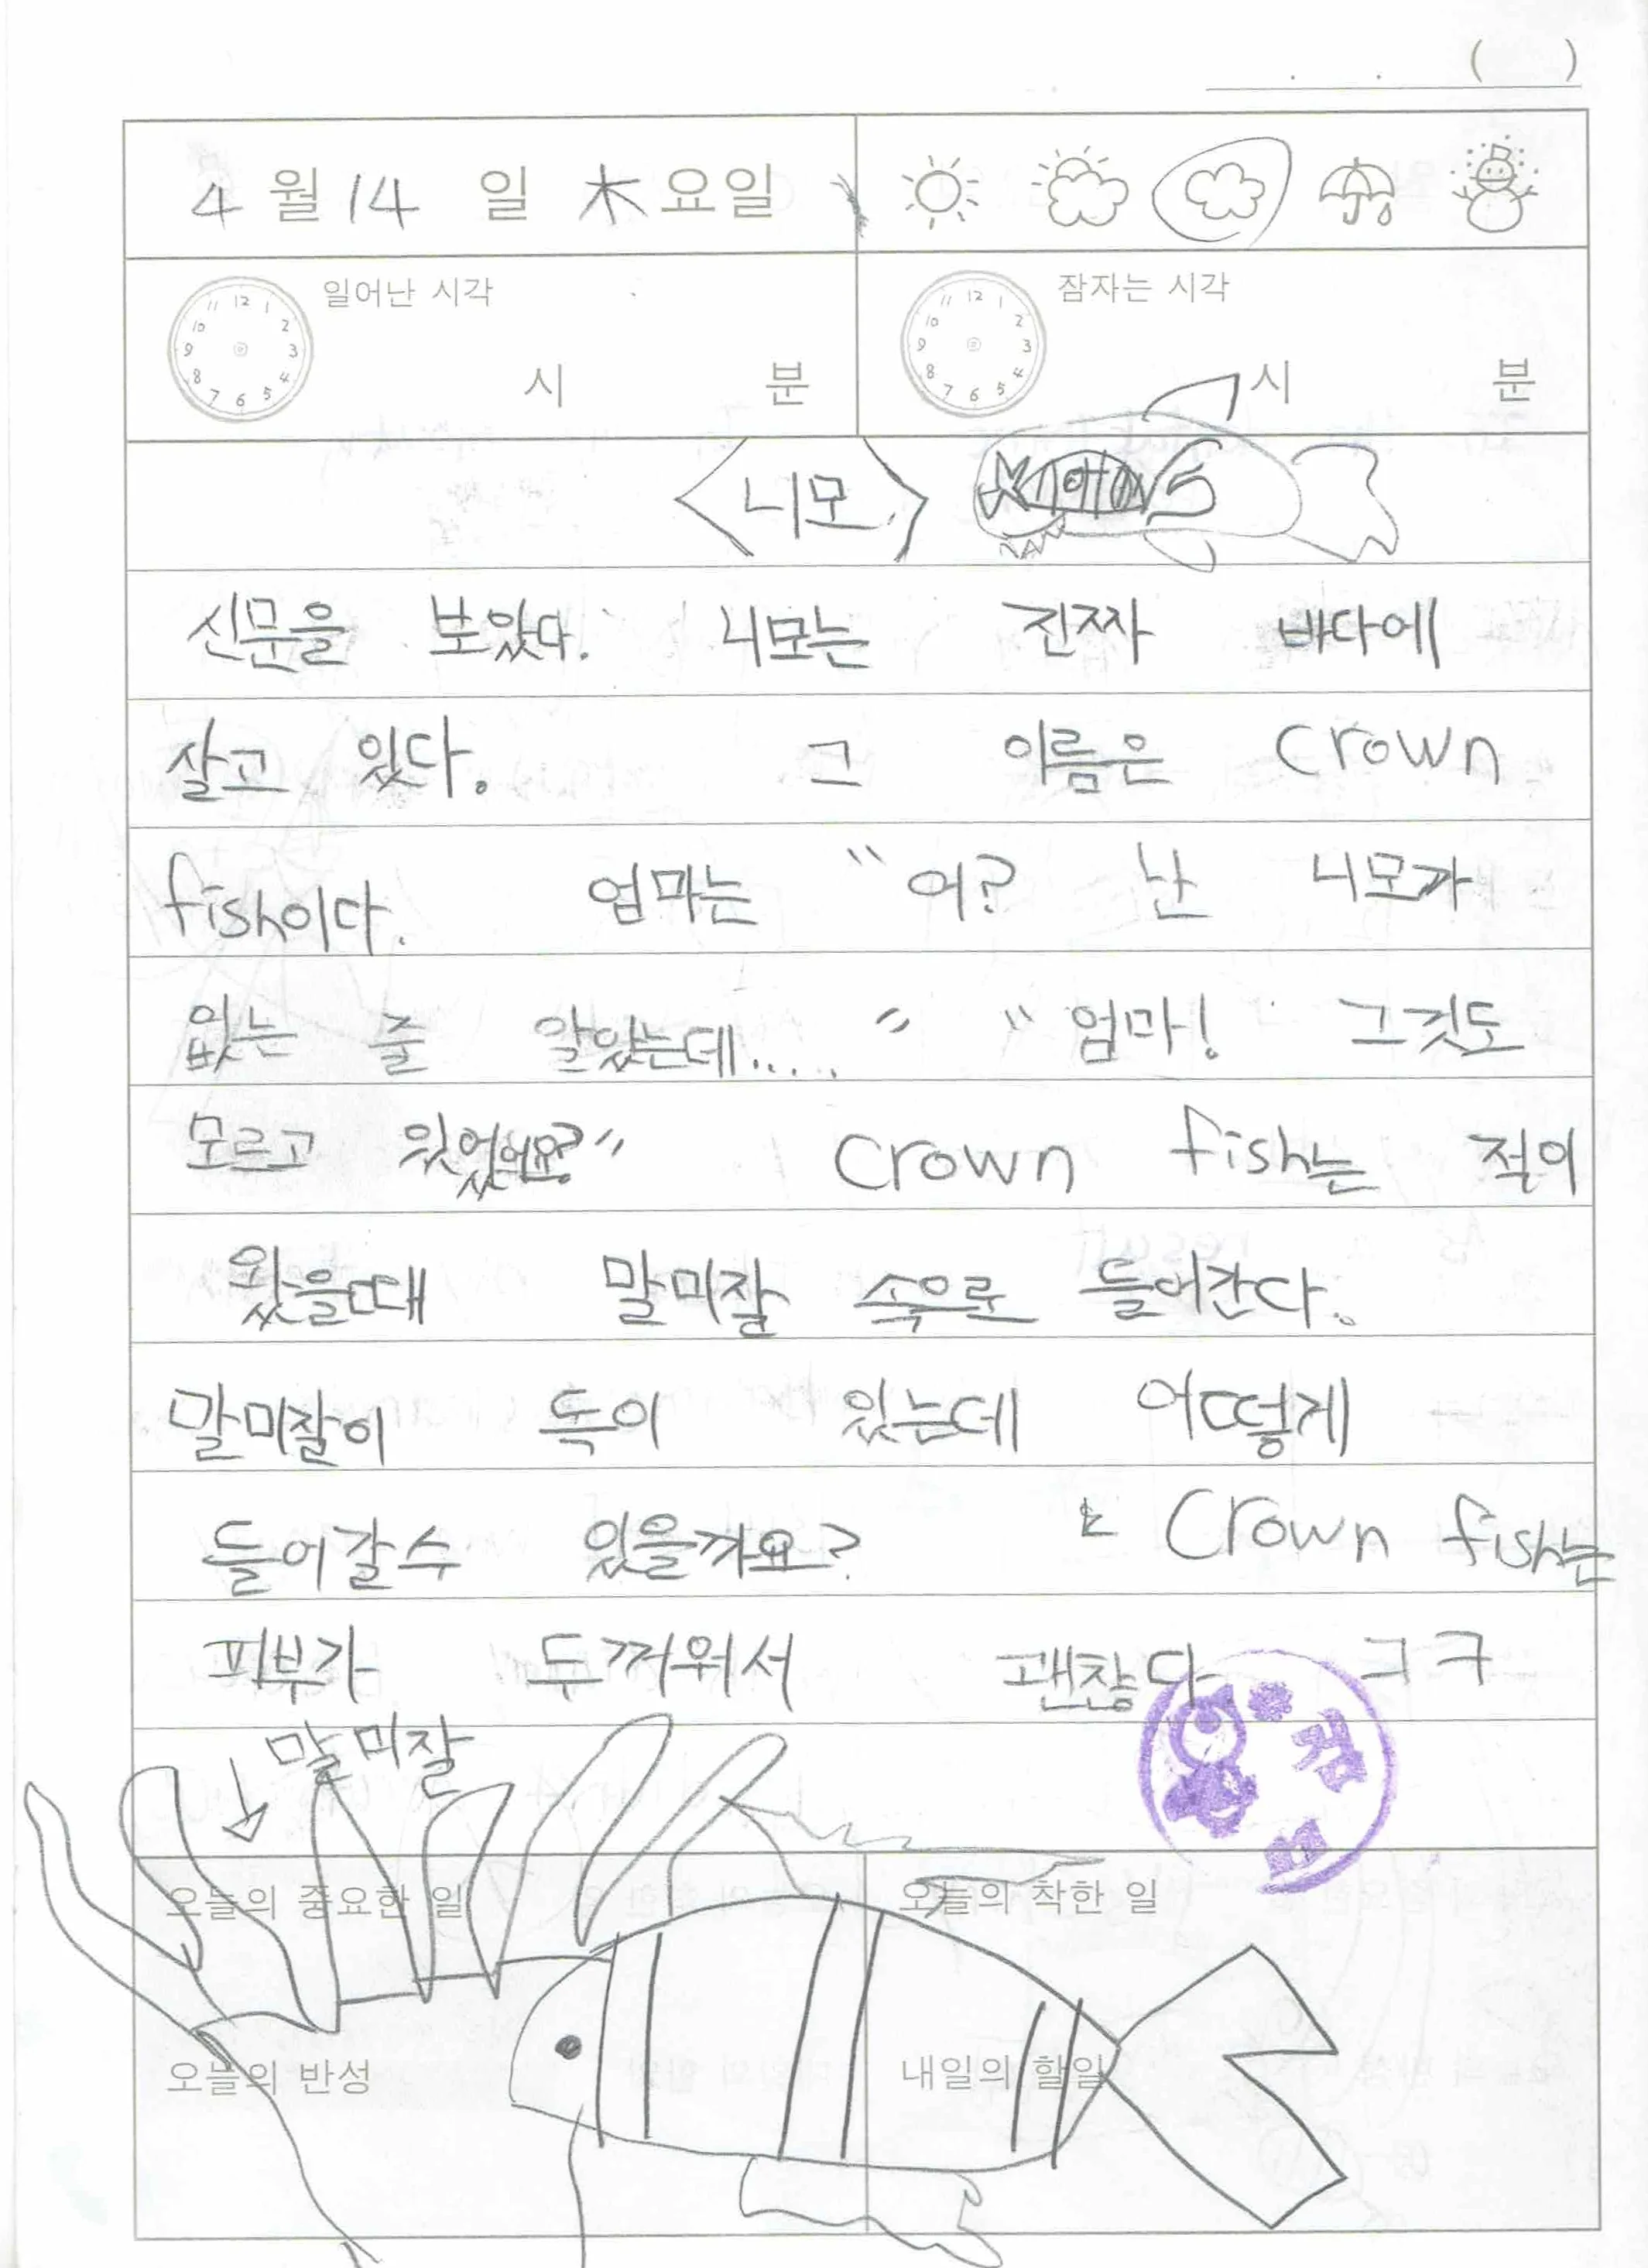 ( )
4월 14일 木요일
일어난 시각
시 분
잠자는 시각
시 분
<니모>
신문을 보았다. 니모는 진짜 바다에
살고 있다. 그 이름은 crown
fish이다. 엄마는 "어? 난 니모가
없는 줄 알았는데....." "엄마! 그것도
모르고 있었어요?" crown fish는 적이
왔을때 말미잘 속으로 들어간다.
말미잘이 독이 있는데 어떻게
들어갈수 있을까요? Crown fish는
피부가 두꺼워서 괜찮다. ㅋㅋ
말미잘
검
오늘의 중요한 일
오늘의 착한 일
오늘의 반성
내일의 할일